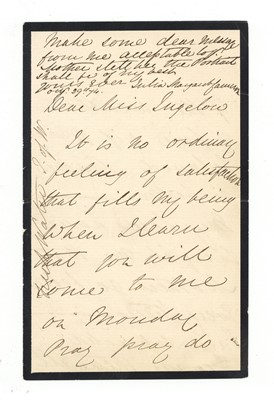 make some dear message
from me acceptable to yr
Mother tell her the Portrait
shall be of my best
yours ever Julia Margaret Cameron
Dear Miss Ingelow
It is no ordinary
feeling of satisfaction
that fills my being
When I learn
that you will
come to me
on Monday
Pray pray do